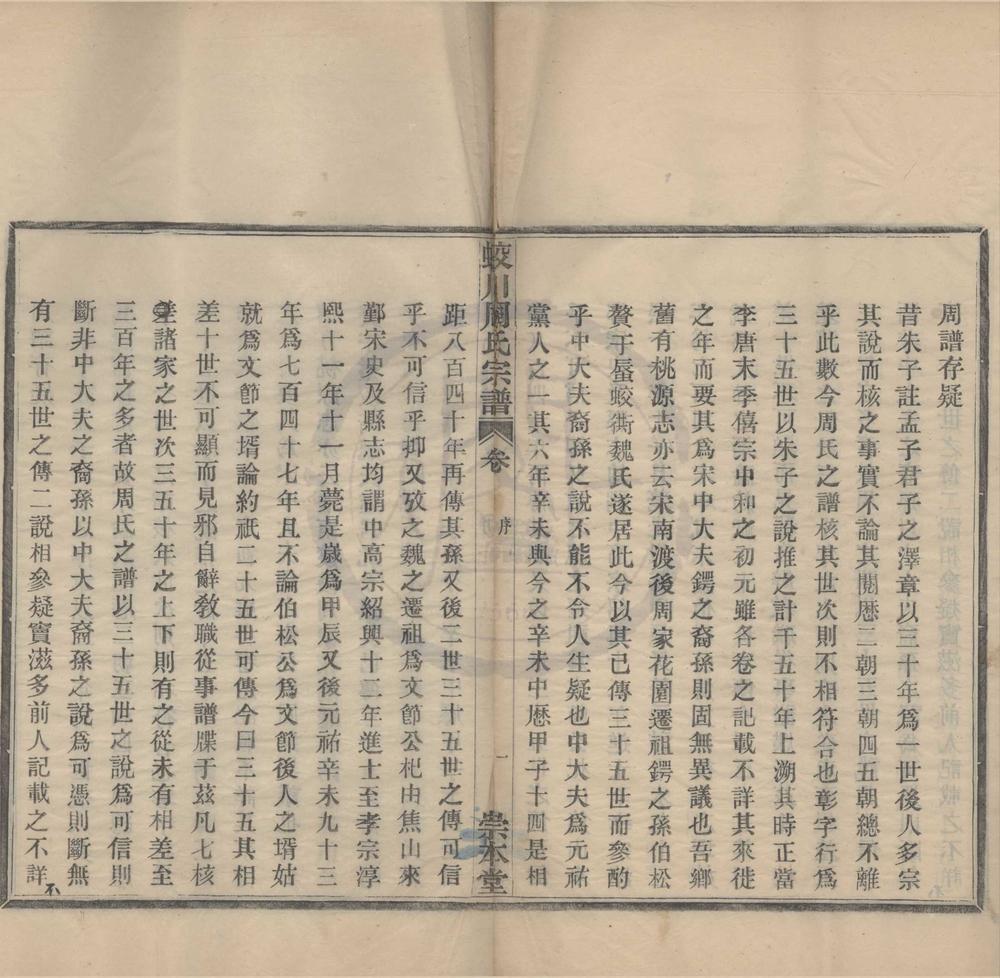 周譜存疑
昔朱子註孟子君子之澤章以三十年爲一世後人多宗
其說而核之事實不論其閱歷二朝三朝四五朝總不離
乎此數今周氏之譜核其世次則不相符合也彰字行爲
三十五世以朱子之說推之計千五十年上溯其時正當
李唐末季僖宗中和之初元雖各卷之記載不詳其來徙
之年而要其爲宋中大夫鍔之裔孫則固無異議也吾鄉
舊有桃源志亦云宋南渡後周家花園遷祖鍔之孫伯松
贅于蜃蛟衖魏氏遂居此今以其已傳三十五世而參酌
乎中大夫裔孫之說不能不令人生疑也中大夫爲元祐
黨人之一其六年辛未與今之辛未中歷甲子十四是相
蛟川周氏宗譜 卷 序 一 崇本堂
距八百四十年再傳其孫又後二世三十五世之傳可信
乎不可信乎抑又攷之魏之遷祖爲文節公杞由焦山來
鄞宋史及縣志均謂中高宗紹興十二年進士至孝宗淳
熙十一年十一月薨是歲爲甲辰又後元祐辛未九十三
年爲七百四十七年且不論伯松公爲文節後人之壻姑
就以爲文節之壻論約祇二十五世可傳今曰三十五相
差十世不可顯而見邪自辭敎職從事譜牒于茲凡七核
諸家之世次三五十年之上下則有之從未有相差至
三百年之多者故周氏之譜以三十五世之說爲可信則
斷非中大夫之裔孫以中大夫裔孫之說爲可憑則斷無
有三十五世之傳二說相參疑竇滋多前人記載之不詳